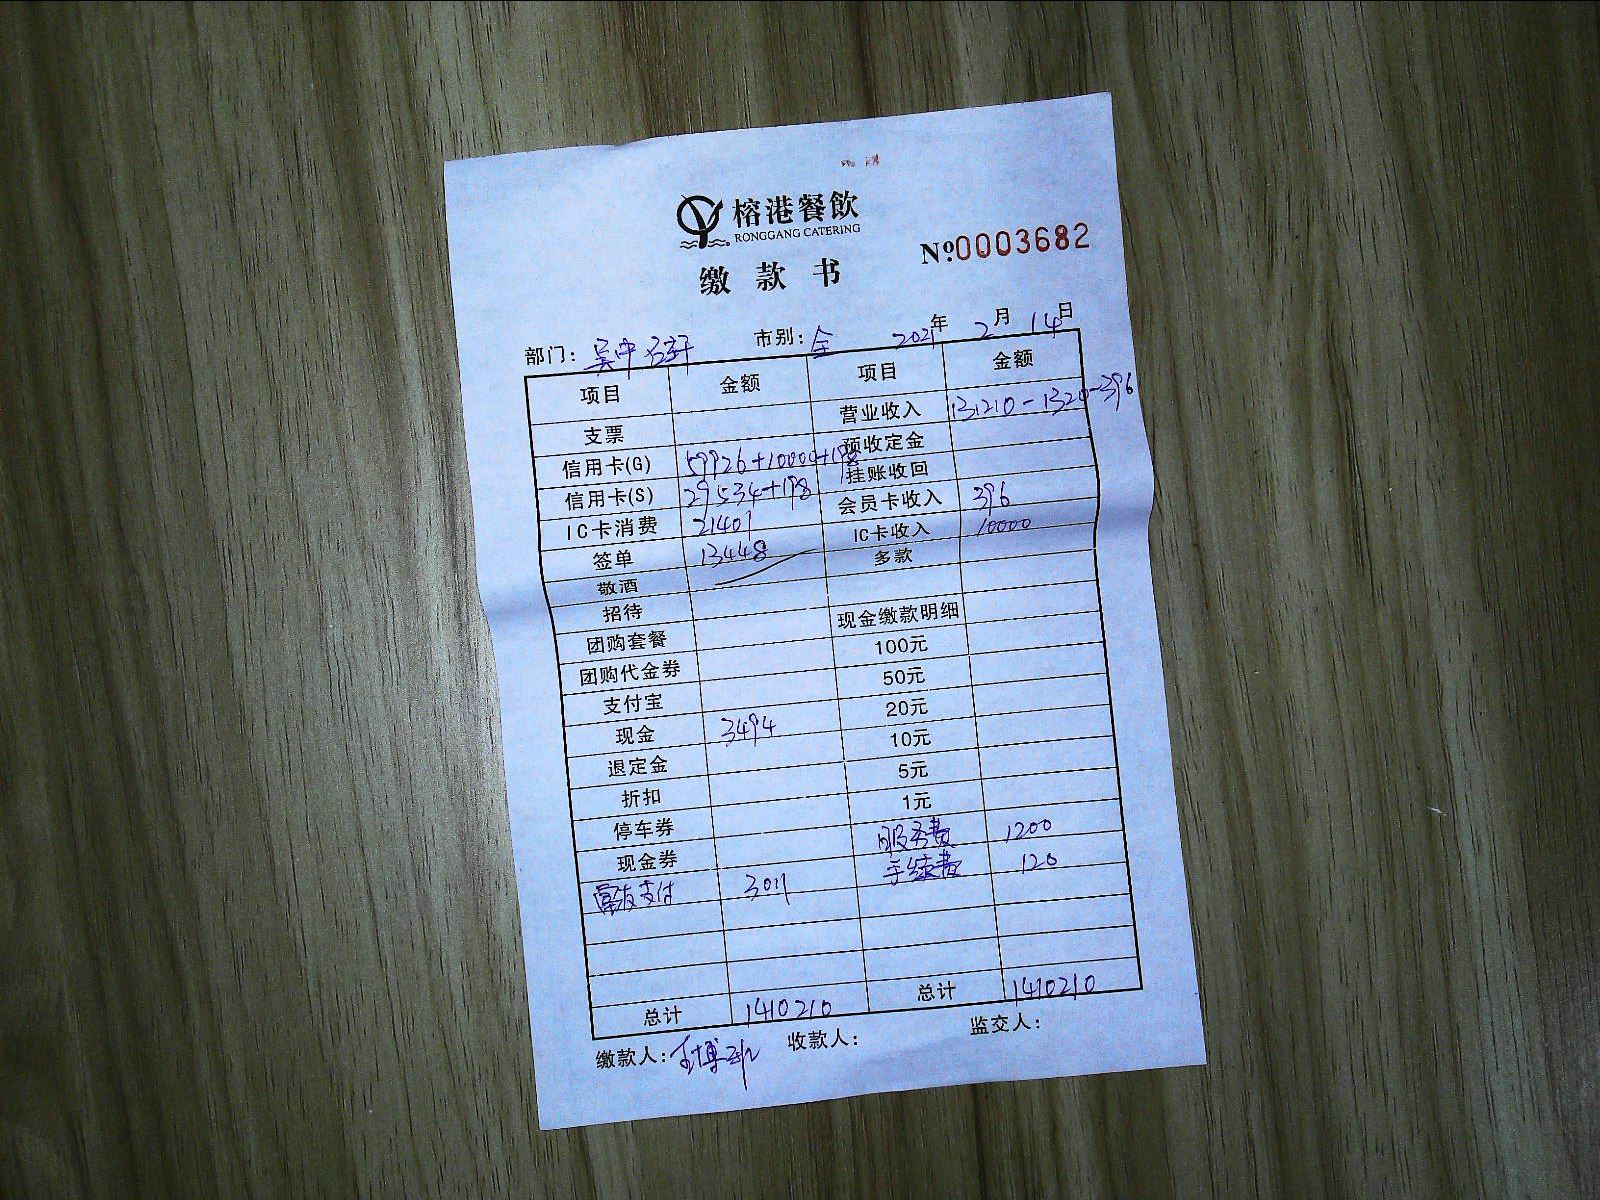 榕港餐飲
RONGGANG CATERING
№0003682
缴款书
部门: 吴中名轩 市别: 全 2021年 2月 14日
项目 金额 项目 金额
支票 营业收入 131210-1320-396
信用卡(G) 59926+10000+198 预收定金
信用卡(S) 29534+198 挂账收回
IC卡消费 21401 会员卡收入 396
签单 13448 IC卡收入 10000
敬酒 多款
招待 现金缴款明细
团购套餐 100元
团购代金券 50元
支付宝 20元
现金 3494 10元
退定金 5元
折扣 1元
停车券 服务费 1200
现金券 手续费 120
富友支付 3011
总计 1410210 总计 1410210
缴款人: 收款人: 监交人: